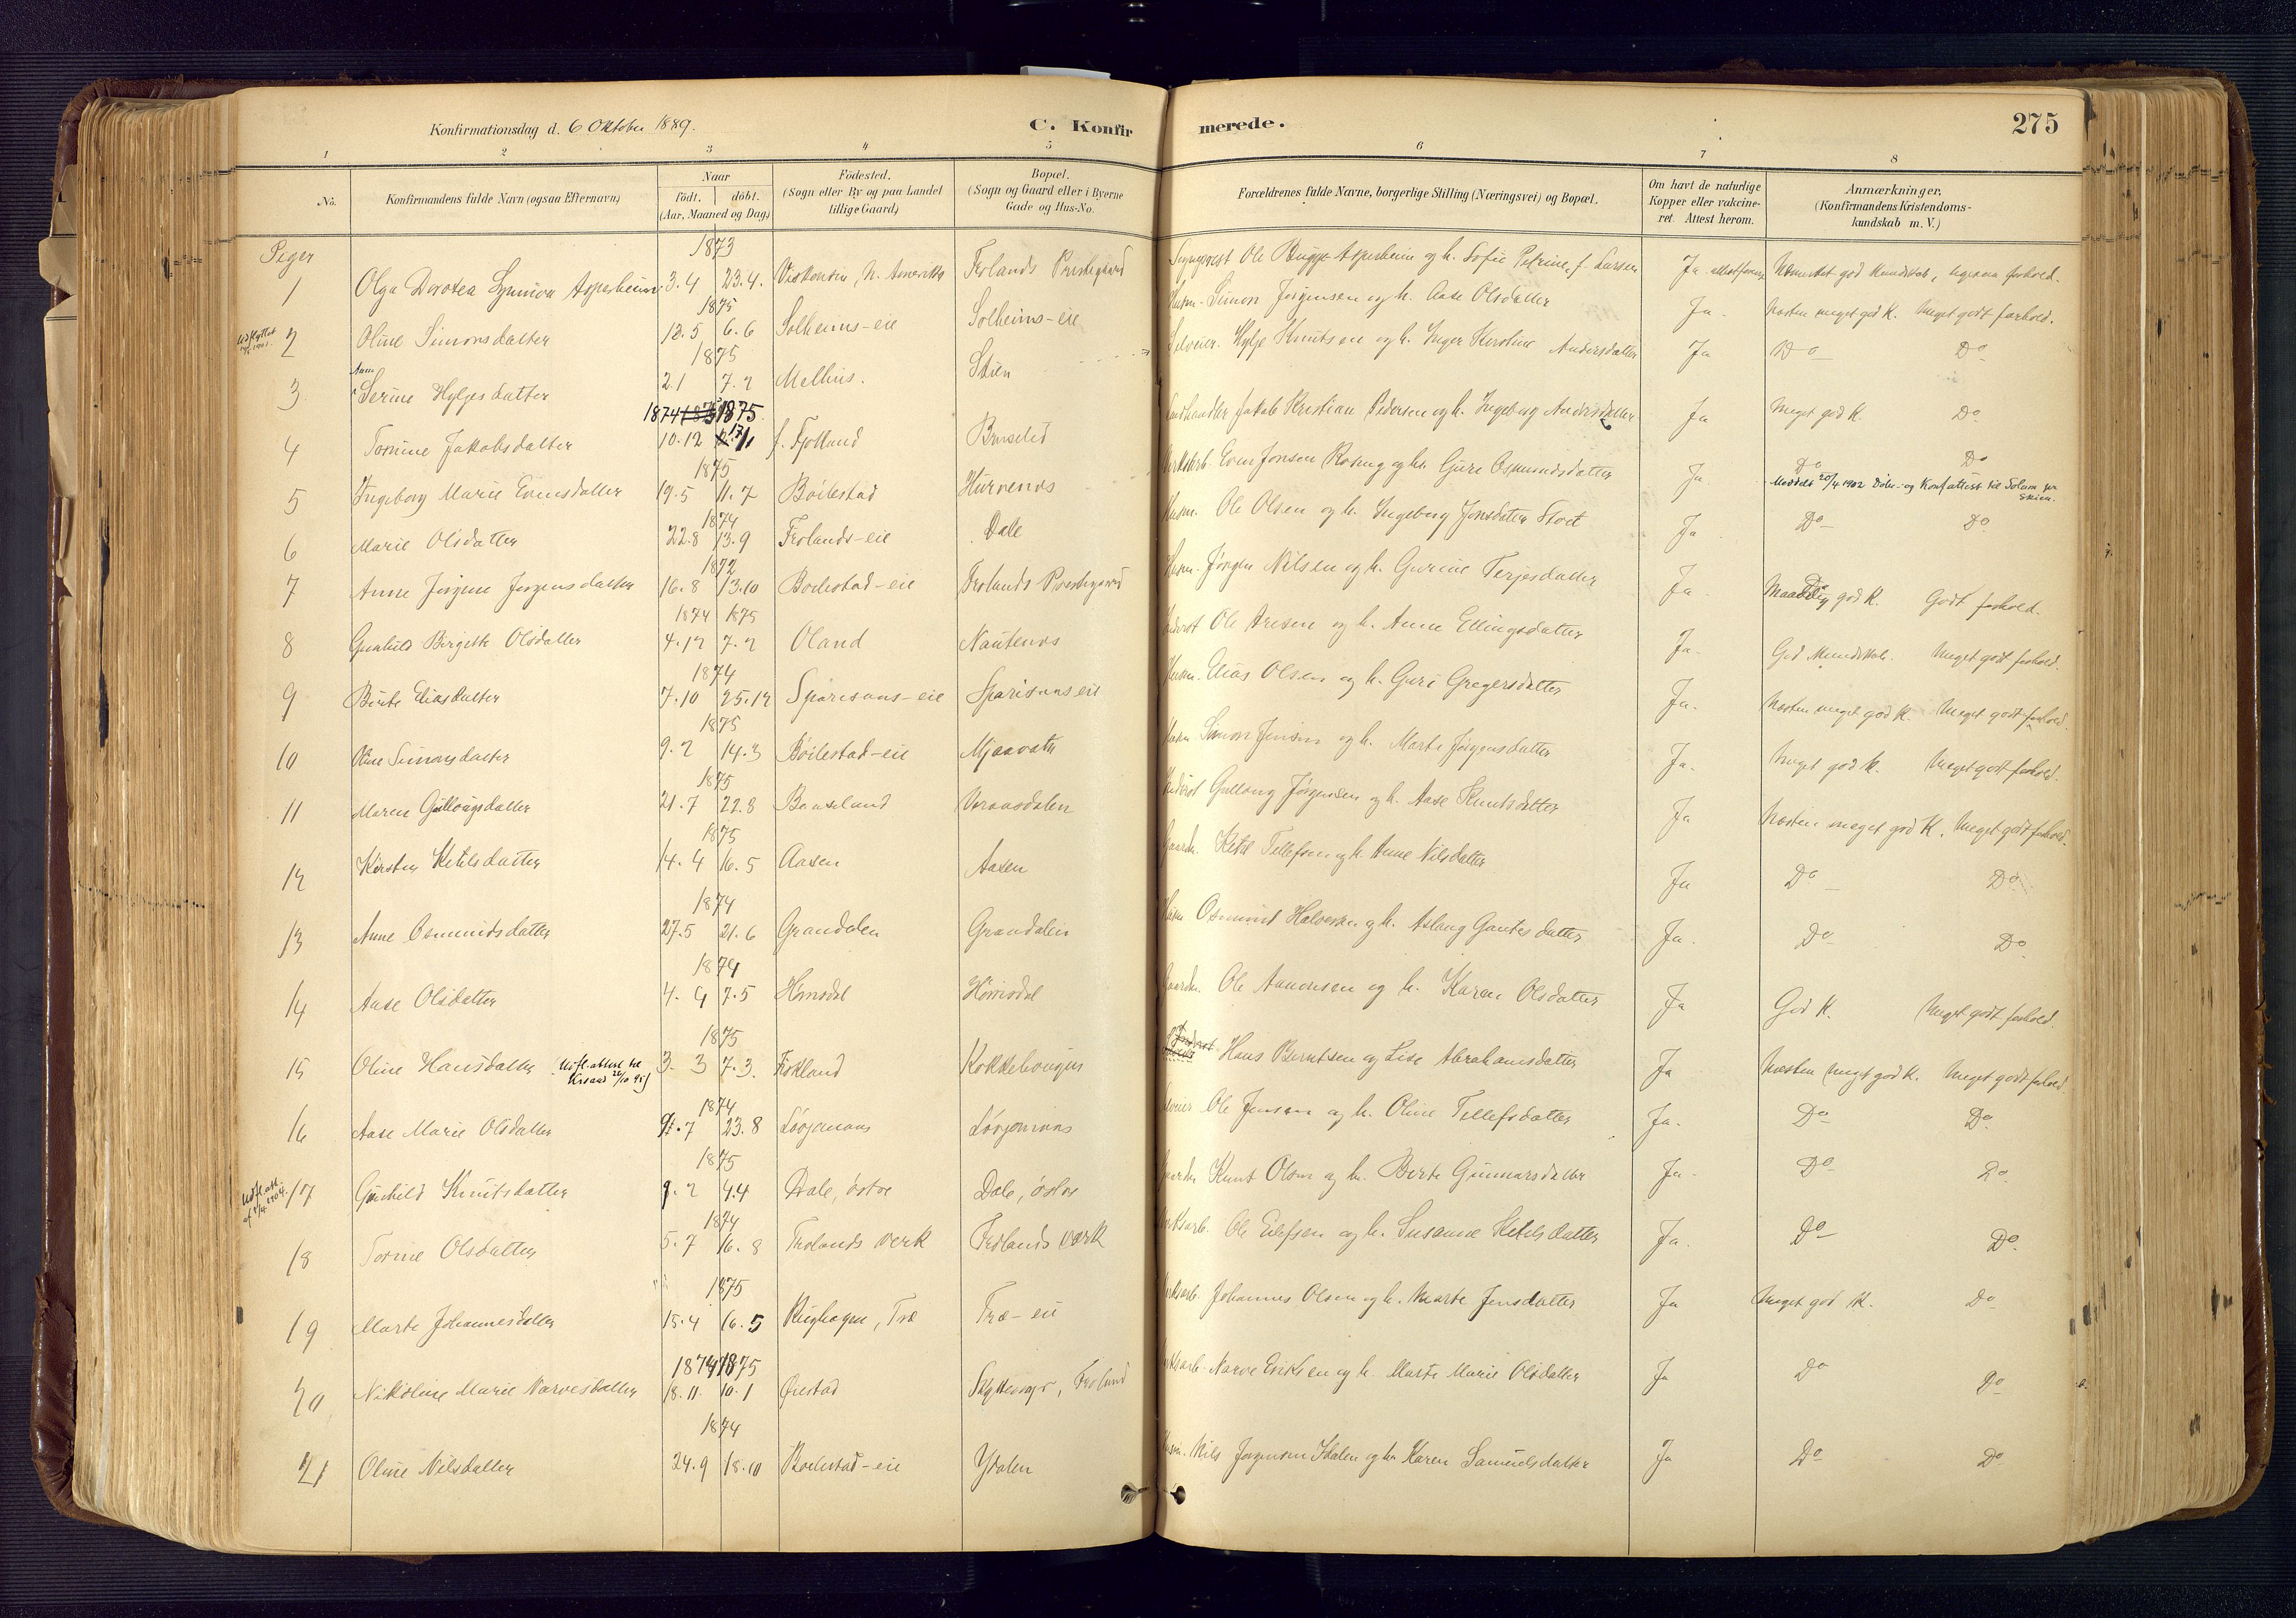 Konfirmationsdag d. 6 Oktober 1889.
C. Konfirmerede.
275
1 2 3 4 5 6 7 8
No.
Konfirmandens fulde Navn (ogsaa Efternavn)
Naar
födt. döbt.
(Aar, Maaned og Dag)
Födested.
(Sogn eller By og paa Landet
tillige Gaard)
Bopæl.
(Sogn og Gaard eller i Byerne
Gade og Hus-No.
Forældrenes fulde Navne, borgerlige Stilling (Næringsvei) og Bopæl.
Om havt de naturlige
Kopper eller vakcine-
ret. Attest herom.
Anmærkninger.
(Konfirmandens Kristendoms-
kundskab m. V.)
Piger
1873
1 Olga Dorotea Asperheim 3.4 23.4. N. Amerika Frolands Prestegaard Ole Bugge Asperheim og h. Sofie Petrine f. Larsen Ja god Kundskab, ligesaa forhold.
1875
2 Oline Simonsdatter 12.5 6.6 Solheims-eie Solheims-eie Husm. Simon Jørgensen og h. Aase Olsdatter Ja. Næsten meget god K. Meget godt forhold.
1875
3 Serine Hyljesdatter 2.1 7.2 Melhus. Stien Selveier. Hylje Knutsen og h. Inger Karoline Andersdatter Ja Do Do
1874 1875
4 Tomine Jakobsdatter 10.12 17/1 f. Fjolland Landhandler Jakob Kristian Pedersen og h. Ingeborg Andersdatter Ja Meget god K. Do
1875
5 Ingeborg Marie Evensdatter 19.5 11.7 Böilestad Hurvenes Even Jonsen og h. Gure Osmundsdatter Ja Do Do
Meddelt 20/4 1902 Döbe- og Konf.attest til Solum pr Skien.
1874
6 Marie Olsdatter 22.8 13.9 Frolands-eie Dale Husm. Ole Olsen og h. Ingeborg Jonsdatter Ja Do Do
1872
7 Anne Jörgine Jörgensdatter 16.8 13.10 Boilestad-eie Frolands Prestegaard Husm. Jörgen Nilsen og h. Gurine Terjesdatter Ja Maadelig god K. Godt forhold.
1874 1875
8 Gunhild Birgitte Olsdatter 4.12 7.2 Oland Nautenes Inderst Ole Aresen og h. Anne Ellingsdatter Ja. God Kundskab. Meget godt forhold.
1874
9 Birte Eliasdatter 7.10 25.12 Sparsaas-eie Sparsaas eie Husm. Elias Olsen og h. Guri Gregersdatter Ja. Næsten meget god K. Meget godt forhold.
1875
10 Simonsdatter 9.2 14.3 Böilestad-eie Mjaavatn Husm. Simon Jensen og h. Marte Jörgensdatter Ja. Meget god K. Meget godt forhold.
1875
11 Maren Gullougsdatter 21.7 22.8 Baaseland Inderst Gulloug Jörgensen og h. Aase Knutsdatter Ja Næsten meget god K. Meget godt forhold.
1875
12 Kirsten Ketilsdatter 14.4 16.5 Aasen Aasen Gaardm. Ketil Tellefsen og h. Anne Nilsdatter Ja Do Do
1874
13 Anne Osmundsdatter 27.5 21.6 Grandalen Grandalen Husm Osmund Halvorsen og h. Aslaug Gautesdatter Ja. Do Do
1874
14 Aase Olsdatter 4.4 7.5 Hömsdal Hömsdal Gaardm. Ole Aanonsen og h. Karen Olsdatter Ja God K. Meget godt forhold.
1875
15 Oline Hansdatter (Udfl.attest til Krsand 26/10 95) 3.3 7.3. Kokkehougen Hans Berntsen og Lise Abrahamsdatter Ja Næsten meget god K. Meget godt forhold
1874
16 Aase Marie Olsdatter 7 23.8 Selveier Ole Jensen og h. Oline Tellefsdatter Ja. Do Do
1875
Udfl.att. 1904.
17 Gunhild Knutsdatter 9.2 4.4 Dale, östre Dale, östre Gaardm Knut Olsen og h. Berte Gunnarsdatter Ja. Do Do
1874
18 Torine Olsdatter 5.7 16.8 Frolands verk Frolands værk Verksarb. Ole Eilefsen og h. Susanne Ketilsdatter Ja. Do Do.
1875
19 Marte Johannesdatter 15.4 16.5 Træ Træ-eie Verksarb. Johannes Olsen og h. Marte Jensdatter Ja Meget god K. Do
1874 1875
20 Nikoline Marie Narvesdatter 18.11. 10.1 Öiestad Froland Verksarb. Narve Eriksen og h. Marte Marie Olsdatter Ja Do Do
1874
21 Oline Nilsdatter 24.9 18.10 Boilestad-eie Ydalen Husm. Nils Jörgensen Ydalen og h. Karen Samuelsdatter Ja Do Do